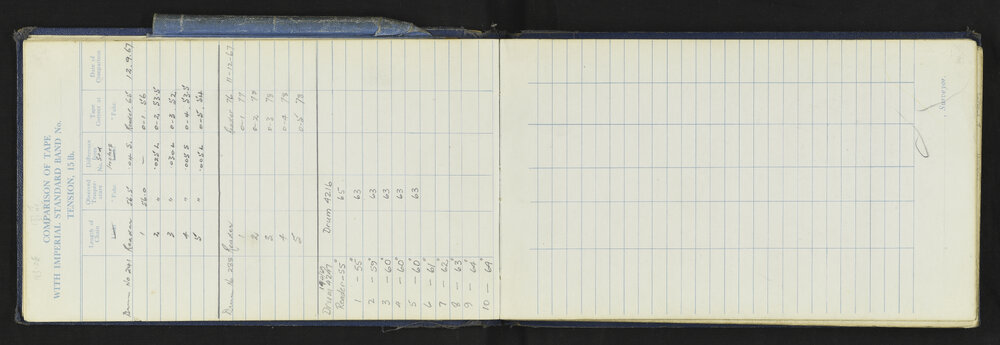 COMPARISON OF TAPE
WITH IMPERIAL STANDARD BAND No.
TENSION, 15 lb.
Length of Chain
Observed Temperature
° Fahr.
Difference from No. 504
Inches
Tape Correct at
° Fahr.
Date of Comparison
Drum No 241 Reader 56.5 .04 S. Reader 65 12.9.67
1 56.0 — 0-1 56
2 " .025 L 0-2 53.5
3 " .030 L 0-3 52
4 " .005 S 0-4 53.5
5 " .005 L 0-5 54
Drum No 238 Reader Reader 76 11-12-67
1 0-1 77
2 0-2 78
3 0-3 78
4 0-4 78
5 0-5 78
Drum 4247 Drum 4216
Reader-55° 65
1 - 55° 63
2 - 59° 63
3 - 60° 63
4 - 60° 63
5 - 60° 63
6 - 61°
7 - 62°
8 - 63°
9 - 64°
10 - 64°
Surveyor.